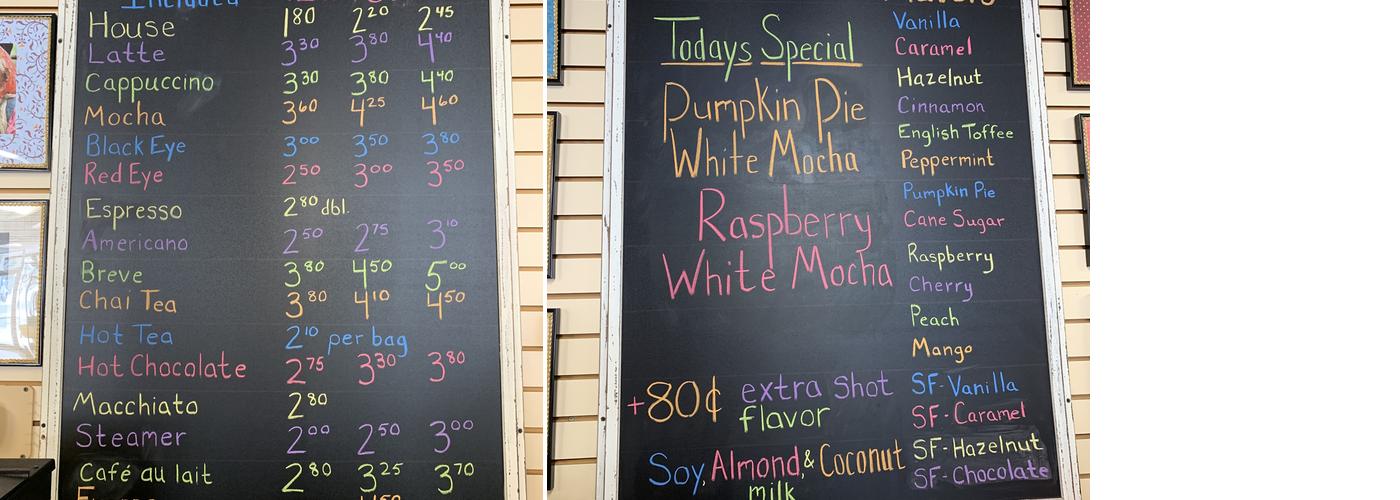 Included
House 1.80 2.20 2.45
Latte 3.30 3.80 4.40
Cappuccino 3.30 3.80 4.40
Mocha 3.60 4.25 4.60
Black Eye 3.00 3.50 3.80
Red Eye 2.50 3.00 3.50
Espresso 2.80 dbl.
Americano 2.50 2.75 3.10
Breve 3.80 4.50 5.00
Chai Tea 3.80 4.10 4.50
Hot Tea 2.10 per bag
Hot Chocolate 2.75 3.30 3.80
Macchiato 2.80
Steamer 2.00 2.50 3.00
Café au lait 2.80 3.25 3.70
Todays Special
Pumpkin Pie
White Mocha
Raspberry
White Mocha
+80¢ extra shot
flavor
Soy, Almond, & Coconut
milk
Vanilla
Caramel
Hazelnut
Cinnamon
English Toffee
Peppermint
Pumpkin Pie
Cane Sugar
Raspberry
Cherry
Peach
Mango
SF-Vanilla
SF-Caramel
SF-Hazelnut
SF-Chocolate